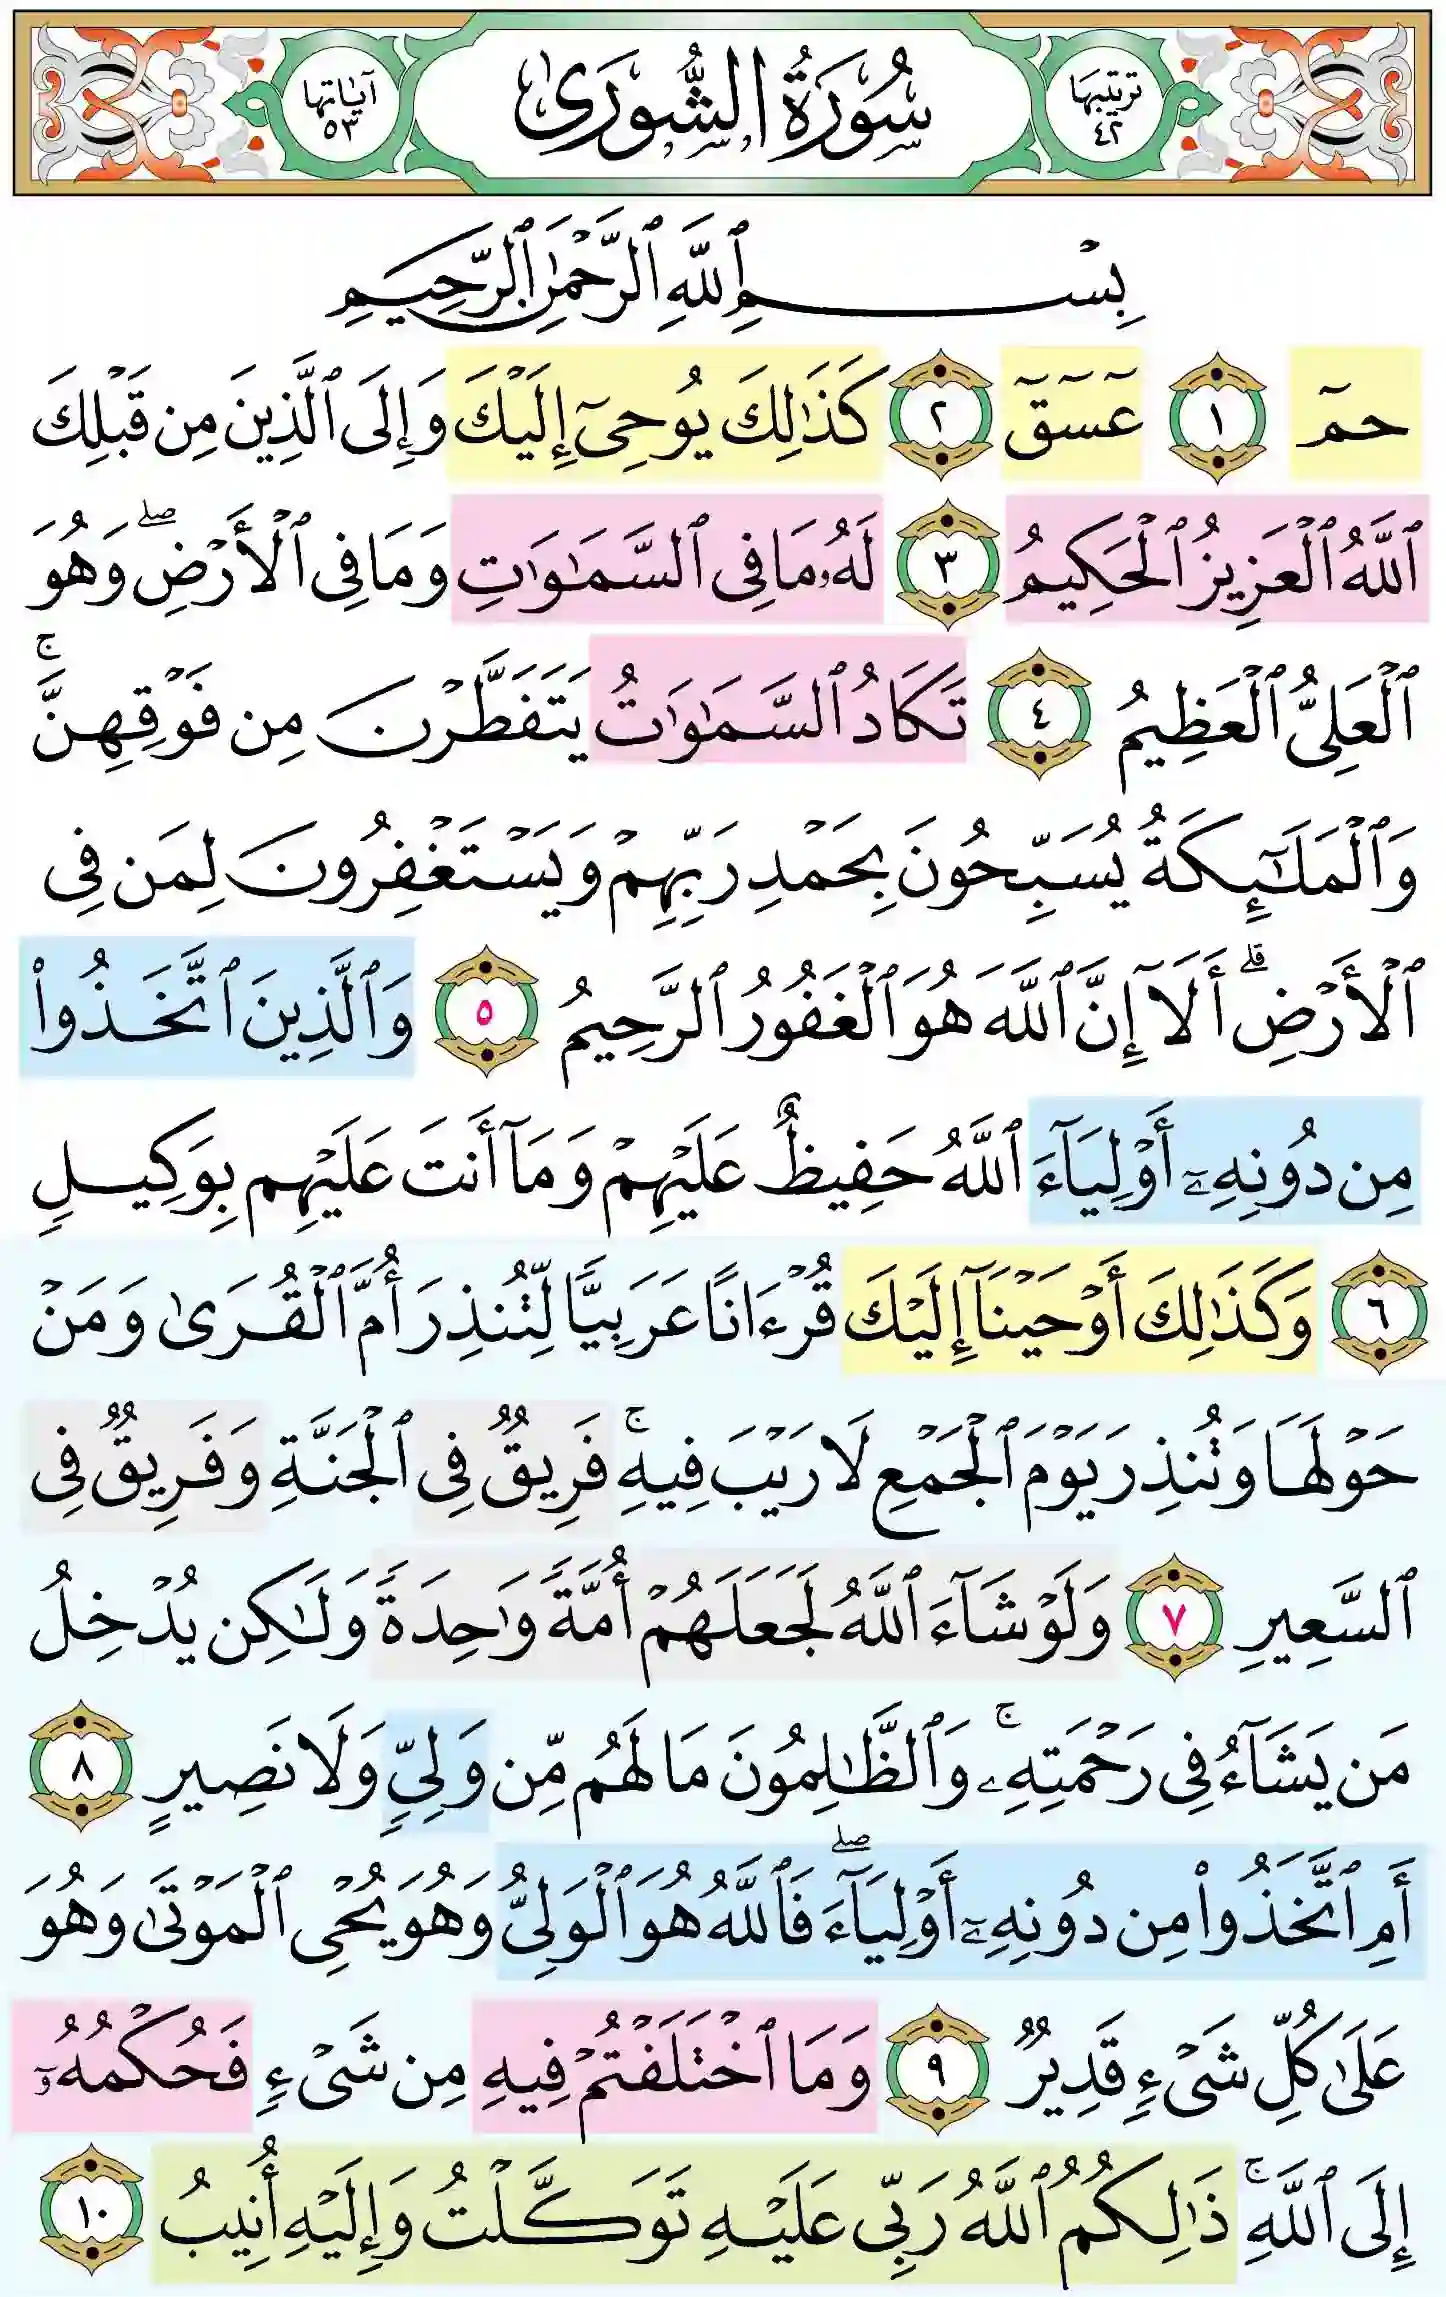 ترتيبها ٤٢ سُورَةُ الشُّورَىٰ آياتها ٥٣
بِسْمِ ٱللَّهِ ٱلرَّحْمَٰنِ ٱلرَّحِيمِ
حمٓ ١ عٓسٓقٓ ٢ كَذَٰلِكَ يُوحِىٓ إِلَيْكَ وَإِلَى ٱلَّذِينَ مِن قَبْلِكَ
ٱللَّهُ ٱلْعَزِيزُ ٱلْحَكِيمُ ٣ لَهُۥ مَا فِى ٱلسَّمَٰوَٰتِ وَمَا فِى ٱلْأَرْضِۖ وَهُوَ
ٱلْعَلِىُّ ٱلْعَظِيمُ ٤ تَكَادُ ٱلسَّمَٰوَٰتُ يَتَفَطَّرْنَ مِن فَوْقِهِنَّۚ
وَٱلْمَلَٰٓئِكَةُ يُسَبِّحُونَ بِحَمْدِ رَبِّهِمْ وَيَسْتَغْفِرُونَ لِمَن فِى
ٱلْأَرْضِۗ أَلَآ إِنَّ ٱللَّهَ هُوَ ٱلْغَفُورُ ٱلرَّحِيمُ ٥ وَٱلَّذِينَ ٱتَّخَذُوا۟
مِن دُونِهِۦٓ أَوْلِيَآءَ ٱللَّهُ حَفِيظٌ عَلَيْهِمْ وَمَآ أَنتَ عَلَيْهِم بِوَكِيلٍ
٦ وَكَذَٰلِكَ أَوْحَيْنَآ إِلَيْكَ قُرْءَانًا عَرَبِيًّا لِّتُنذِرَ أُمَّ ٱلْقُرَىٰ وَمَنْ
حَوْلَهَا وَتُنذِرَ يَوْمَ ٱلْجَمْعِ لَا رَيْبَ فِيهِۚ فَرِيقٌ فِى ٱلْجَنَّةِ وَفَرِيقٌ فِى
ٱلسَّعِيرِ ٧ وَلَوْ شَآءَ ٱللَّهُ لَجَعَلَهُمْ أُمَّةً وَٰحِدَةً وَلَٰكِن يُدْخِلُ
مَن يَشَآءُ فِى رَحْمَتِهِۦۚ وَٱلظَّٰلِمُونَ مَا لَهُم مِّن وَلِىٍّ وَلَا نَصِيرٍ ٨
أَمِ ٱتَّخَذُوا۟ مِن دُونِهِۦٓ أَوْلِيَآءَۖ فَٱللَّهُ هُوَ ٱلْوَلِىُّ وَهُوَ يُحْىِ ٱلْمَوْتَىٰ وَهُوَ
عَلَىٰ كُلِّ شَىْءٍ قَدِيرٌ ٩ وَمَا ٱخْتَلَفْتُمْ فِيهِ مِن شَىْءٍ فَحُكْمُهُۥٓ
إِلَى ٱللَّهِۚ ذَٰلِكُمُ ٱللَّهُ رَبِّى عَلَيْهِ تَوَكَّلْتُ وَإِلَيْهِ أُنِيبُ ١٠